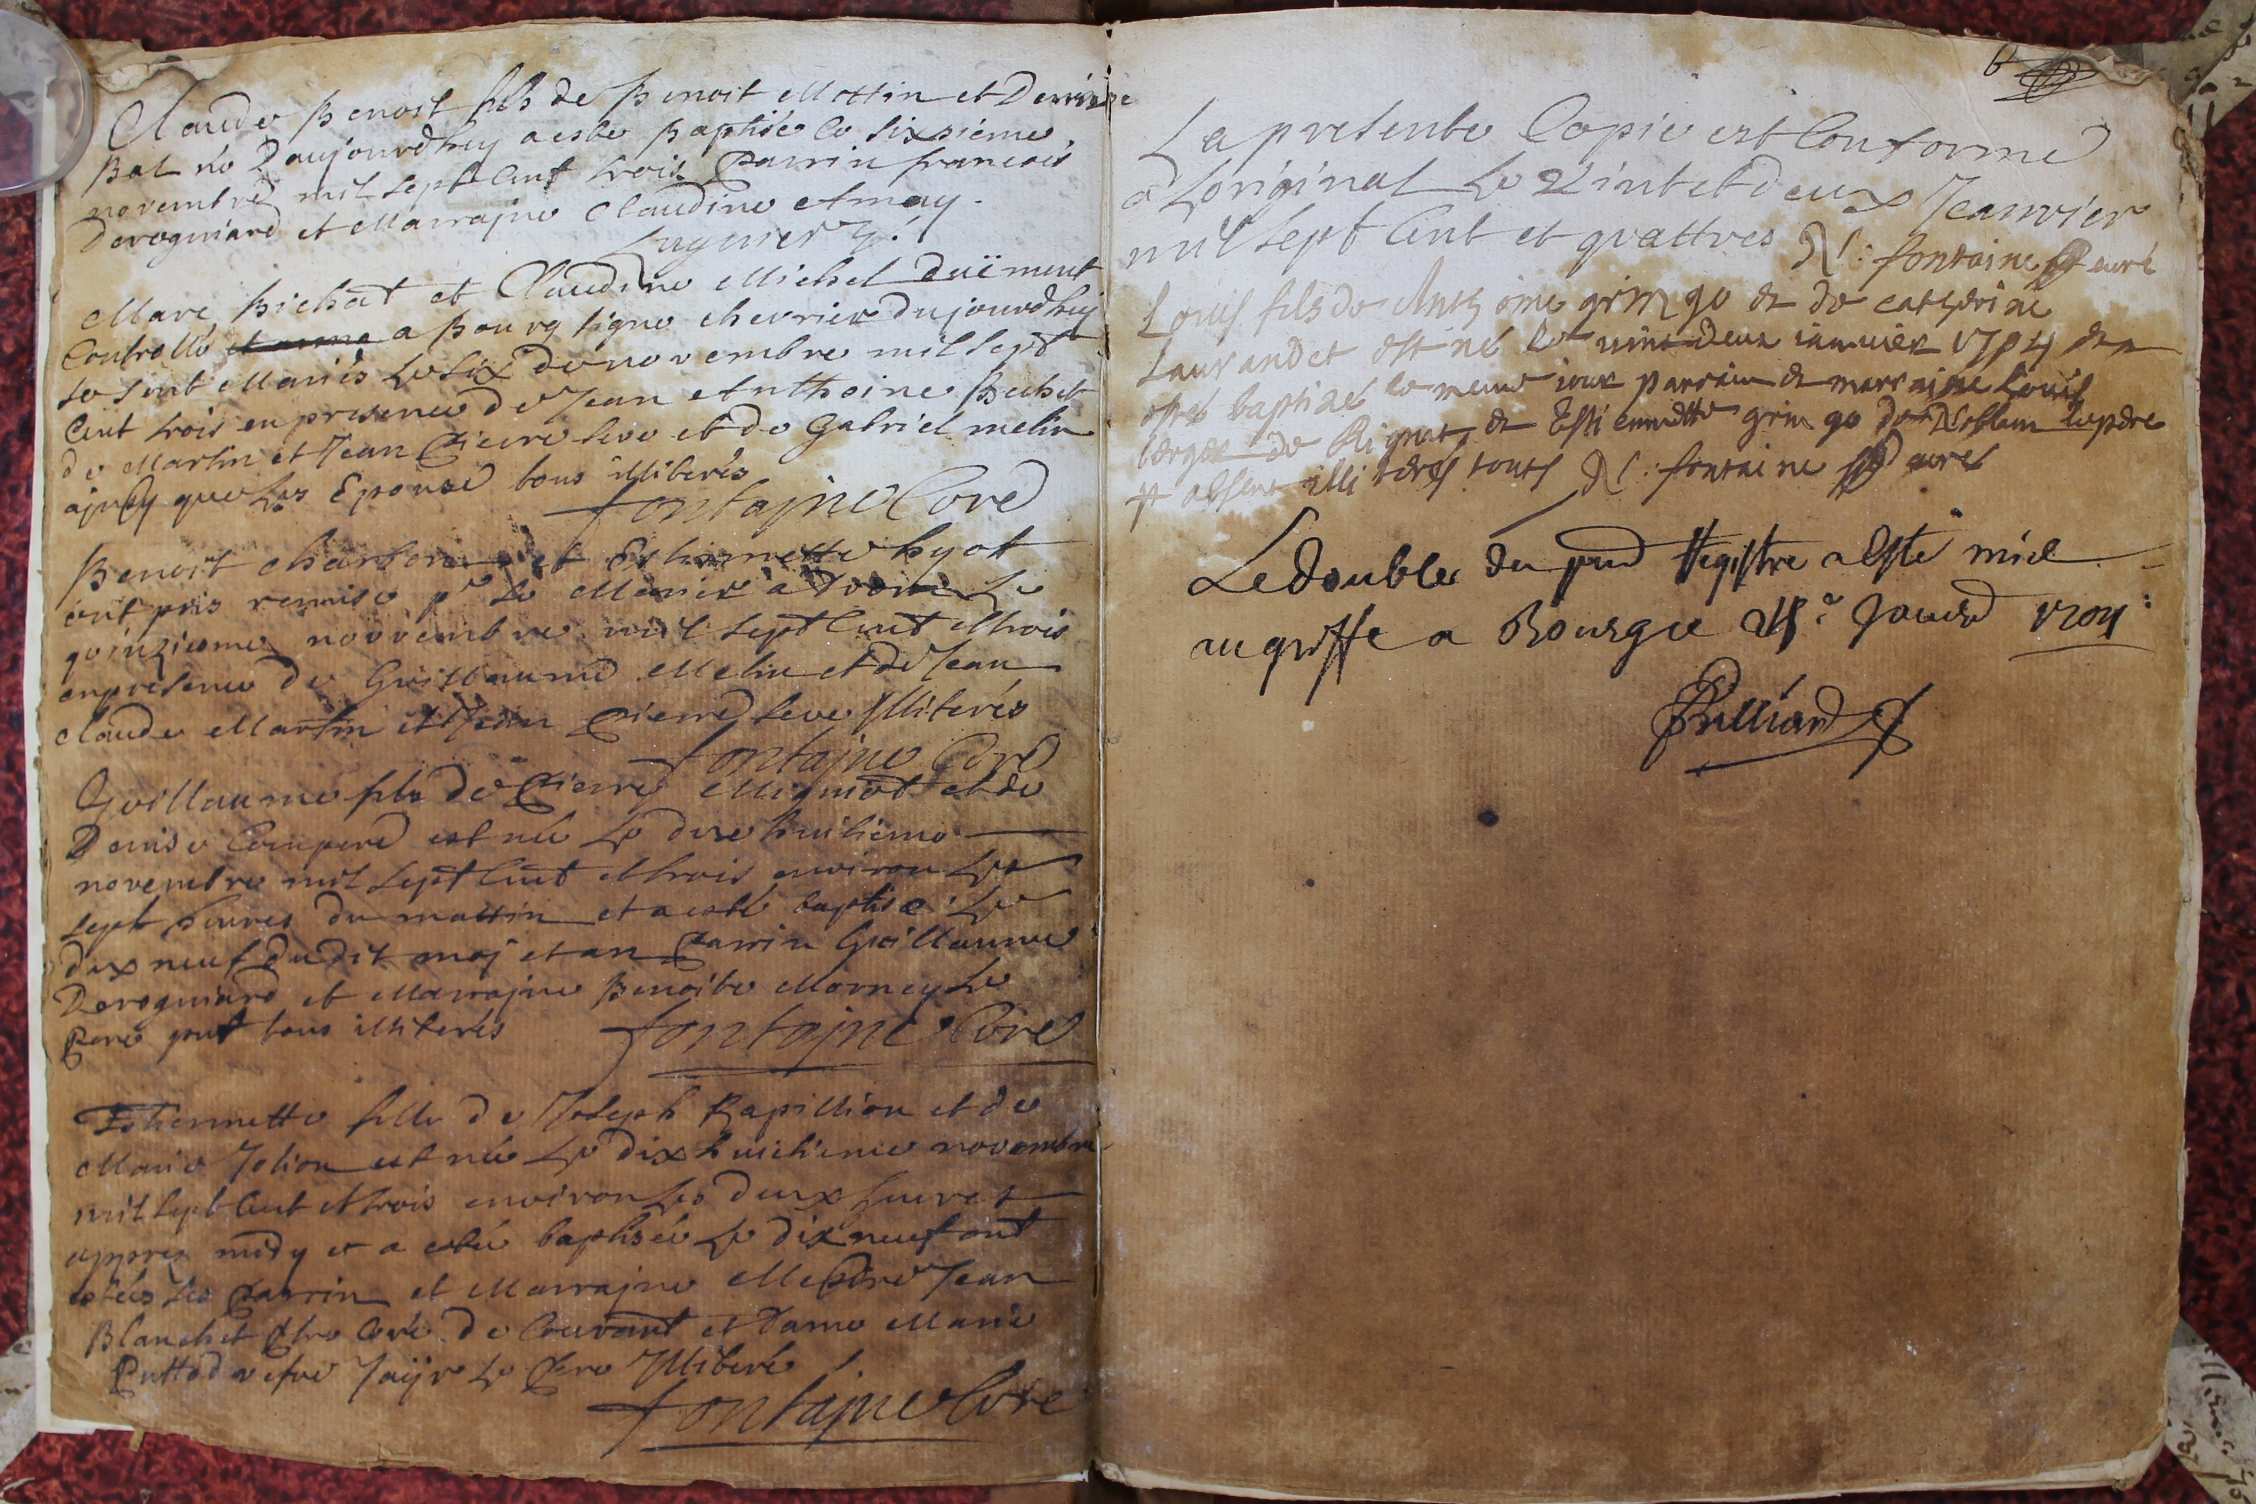 Claude Benoist fils de Benoit Mottin et Denise
Bal né d'aujourdhuy a este Baptisée le sixsieme
novembre mil sept Cent trois Parrin francois
Derognard et Marrajne Claudine
Marc Bichat et Claudine Michel duëment
Controllé a Bourg signe chevrier dujourdhuy
se sont Mariés Le six de novembre mil sept
Cent trois en presence de Jean Anthoine
de Martin et Jean Pierre seve et de Gabriel melin
que Les Epouse tous illiterés
fontajne Cure
Benoit Charbon et Estiennette hyot
ont pris remise pr Le Marier a Le
quinzieme novembre mil sept Cent et trois
en presence de Guillaume Melin et de Jean
Claude Martin et Jean Pierre seve Illiterés
fontajne Curé
Guillaume fils de Pierre Migniot et de
Denise Compere est née Le dixe huitieme
novembre mil sept Cent et trois environ Les
sept heures du mattin et a esté baptise Le
dix neuf dudit moj et an Parrin Guillaume
Derogniard et Marrajne Benoite Mornay Le
Pere tous illiterés fontajne Cure
Estiennette fille de Joseph Rapillion et de
Marie Jolion est née Le dix huitieme novembre
mil sept Cent et trois environ Les deux heures
appres midy et a esté baptisée Le dix neuf ont
estés Les Parrin et Marrajne Jean
Blanchet Ptre Curé de et Dame Marie
Puttod vefve Le Pere Illiteré
fontajne Cure
6
La presente Copie est Conforme
a Loriginal Le Vint et deux Jeanvier
mil sept Cent et quattres fontaine curé
Louis fils de Anthoine gringo et de catherine
Laurandet est né le vint deux ianvier 1704 et a
estes baptisés le meme iour parrain et marraine Louis
berger de Rignat et Estiennette gringo le pere
absent illiterés touts fontaine cures
Le double du pnt Registre a Esté mis
au greffe a Bourg ce Janvr 1704